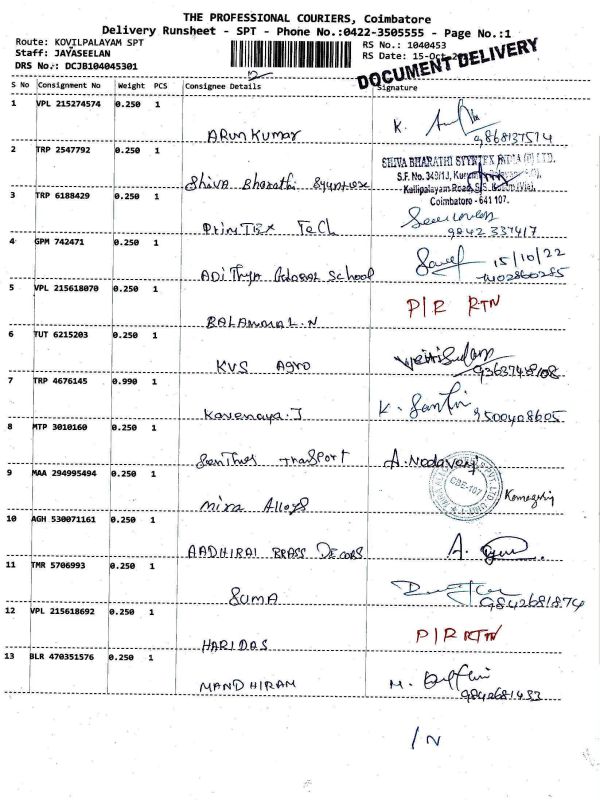 THE PROFESSIONAL COURIERS, Coimbatore
Delivery Runsheet - SPT - Phone No.:0422-3505555 - Page No.:1
Route: KOVILPALAYAM SPT
RS No.: 1040453
Staff: JAYASEELAN
RS Date: 15-Oct-
DRS No.: DCJB104045301
DOCUMENT DELIVERY
S No Consignment No Weight PCS Consignee Details Signature
1 VPL 215274574 0.250 1
Arun Kumar K. 9868137514
2 TRP 2547792 0.250 1
SHIVA BHARATHI SYNTEX INDIA (P) LTD.
S.F. No. 349/1J,
Kallipalayam Road, S.S. Kulam (Via),
Coimbatore - 641 107.
Shiva Bharathi
3 TRP 6188429 0.250 1
9842 337417
4 GPM 742471 0.250 1
Adithya Global School 15/10/22
5 VPL 215618070 0.250 1
P/R RTN
Balammal.N
6 TUT 6215203 0.250 1
KVS Agro
7 TRP 4676145 0.990 1
K. Santhi
9500408605
8 MTP 3010160 0.250 1
Transport A.
9 MAA 294995494 0.250 1
CBE-107
Alloys
10 AGH 530071161 0.250 1
AADHIRAI BRASS DECORS A.
11 TMR 5706993 0.250 1
SUMA 9842681874
12 VPL 215618692 0.250 1
P/R RTN
HARIDAS
13 BLR 470351576 0.250 1
MANDHIRAM M. 9842681433
/N